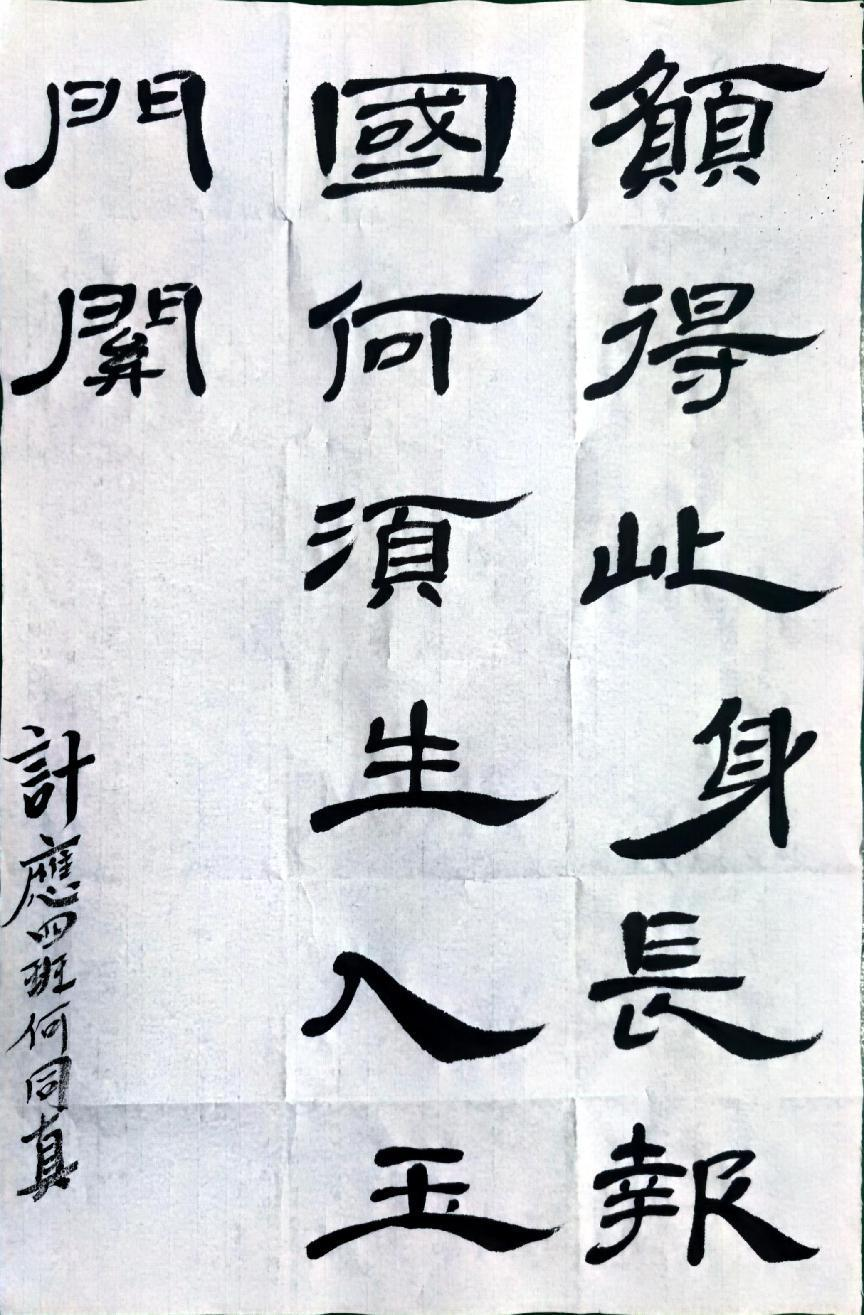 願得此身長報
國何須生入玉
門關
計應四班何同真